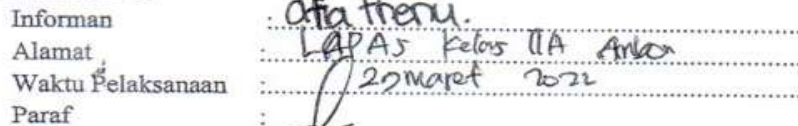 Informan : Ofia Thenu.
Alamat : LAPAS Kelas IIA Ambon
Waktu Pelaksanaan : 29 Maret 2022
Paraf :